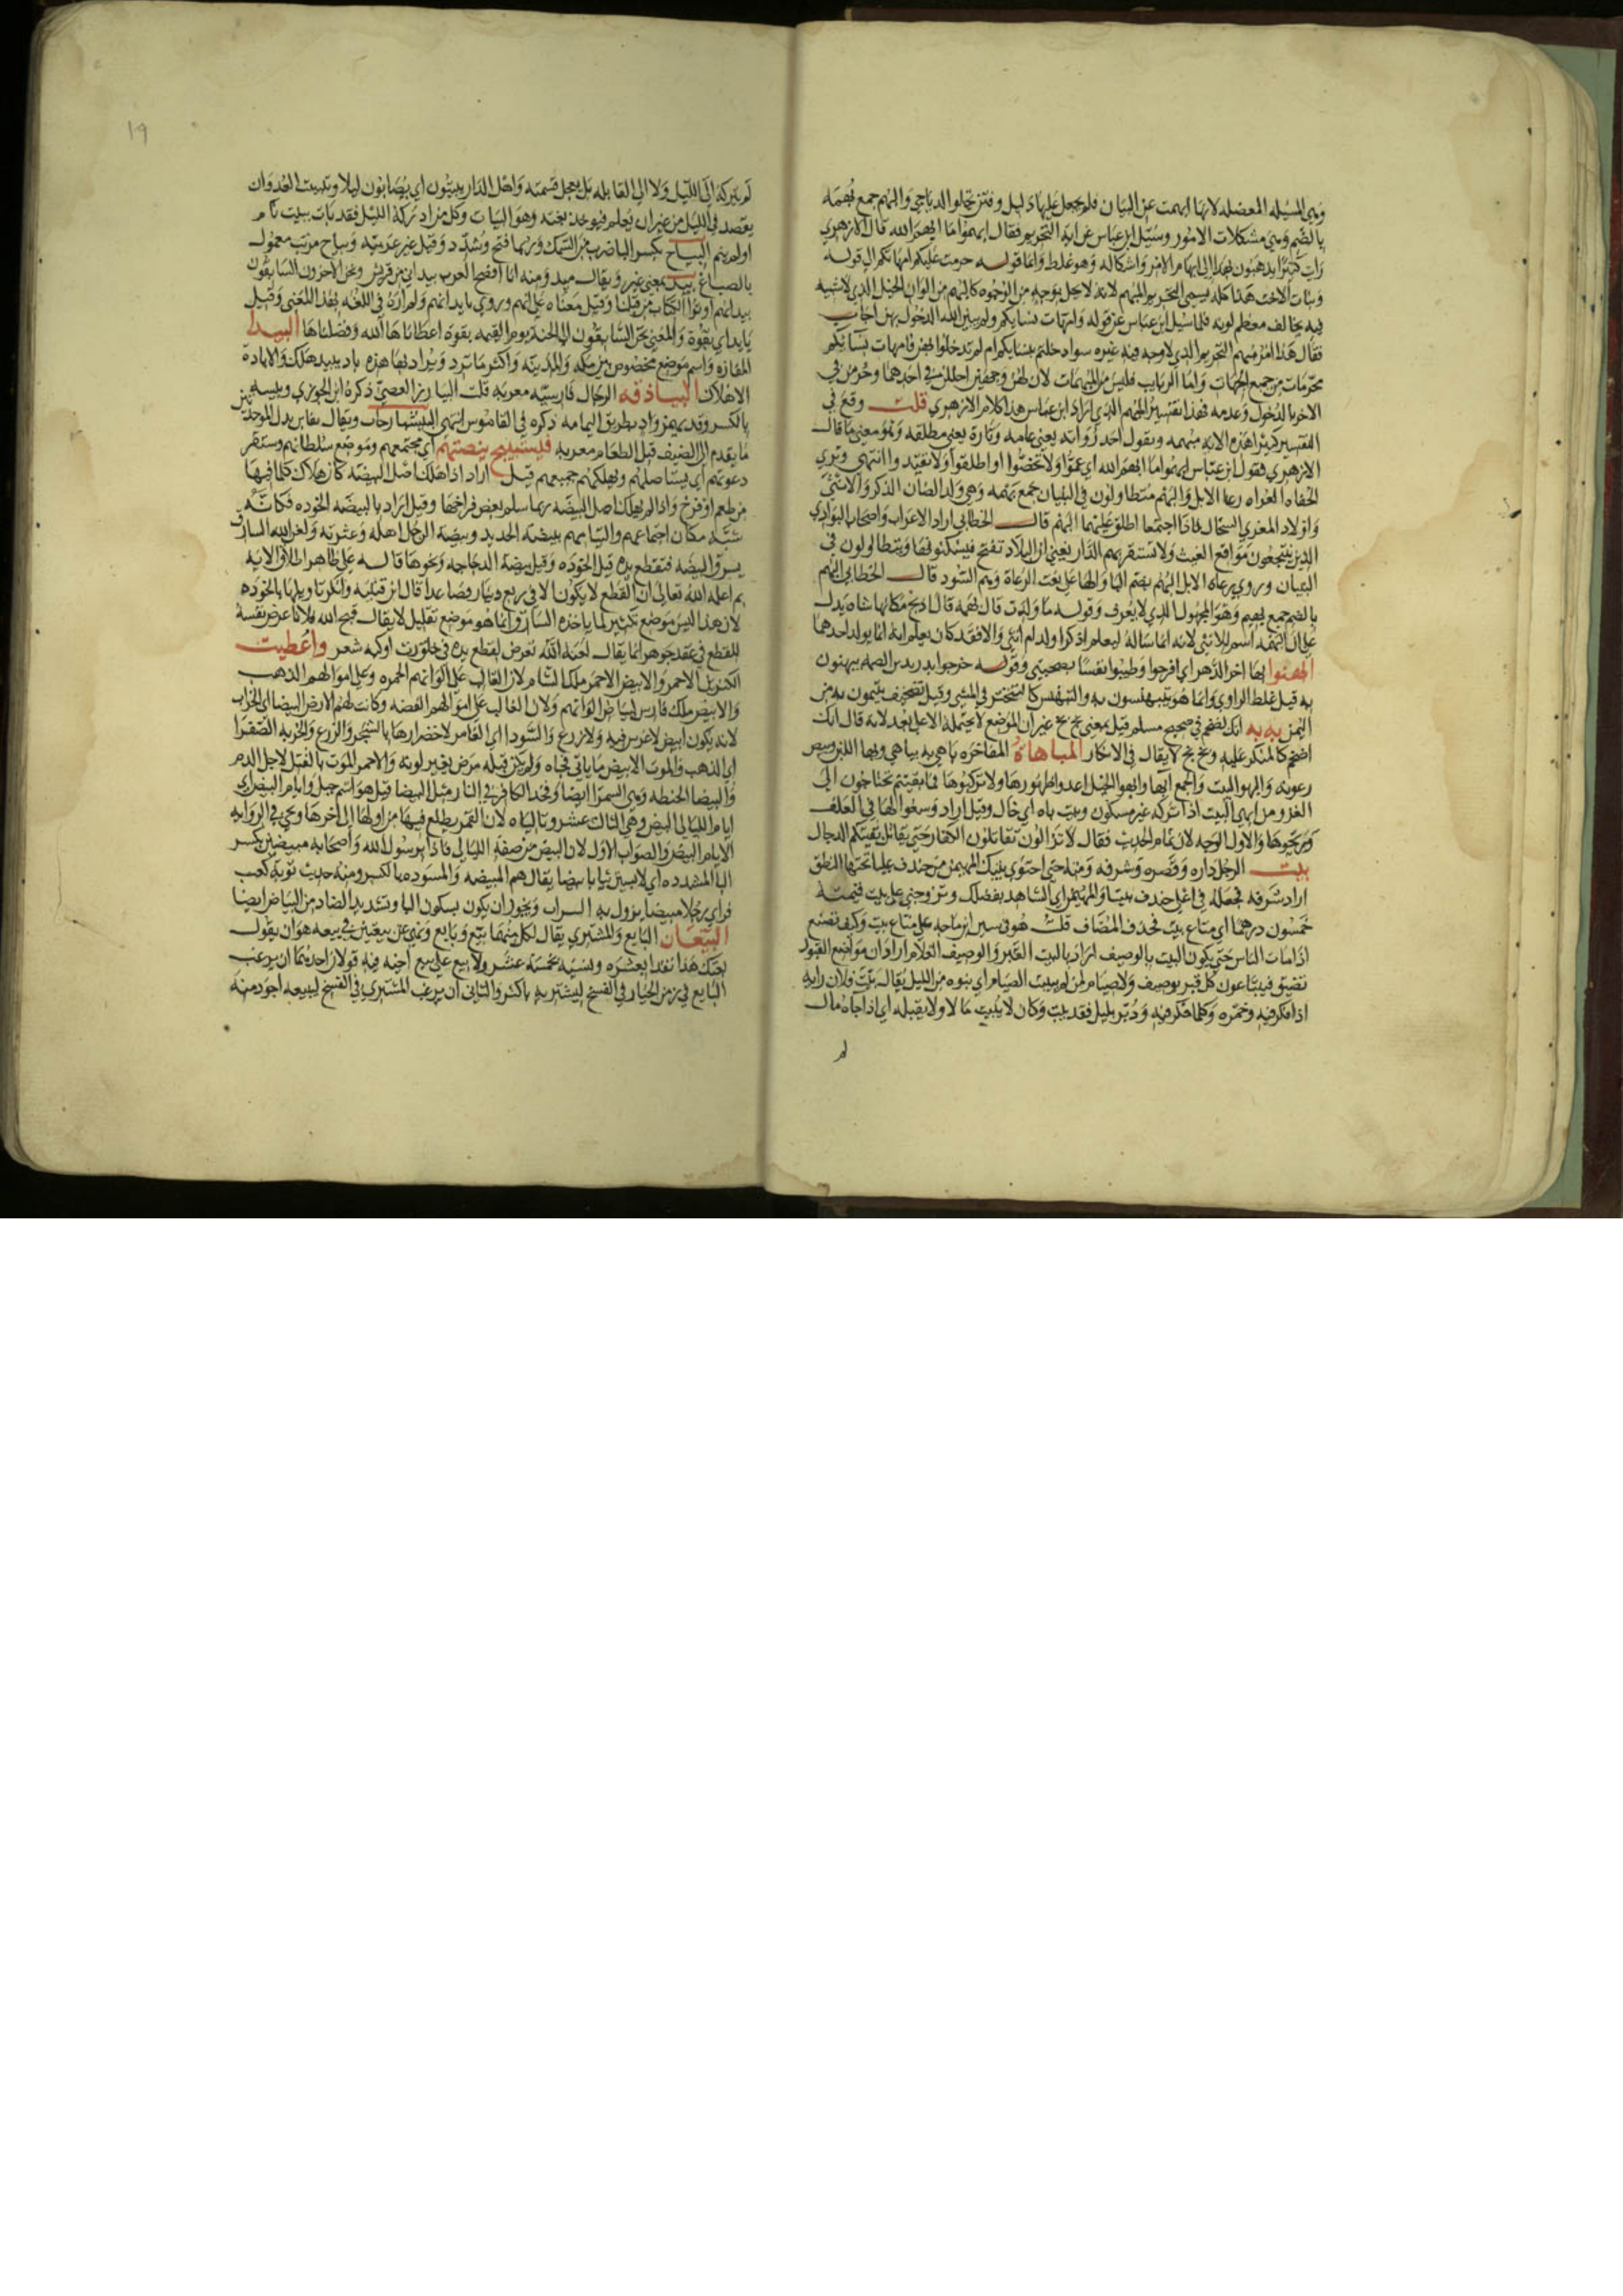 وهي المسيله المعضله لانها ابهمت عن البيان فلم يجعل عليها دليل و فتن تجلو الدياجي والبهم جمع بُهمَه
بالضم وهي مشكلات الامور وسئيل ابن عباس عن اية التحريم فقال ابهموا ما ابهم الله قال الازهري
رايت كثيرًا يذهبون بهذا الى ابهام الامر واشكاله وهو غلط وانما قوله حرمت عليكم امهاتكم الى قوله
وبنات الاخت هذا كله يسمى التحريم المبهم لانه لا يحل بوجه من الوجوه كالبهيم من الوان الخيل الذي لا شيه
فيه يخالف معظم لونه فلما سيل ابن عباس عن قوله وامهات نسايكم ولم يبين الله الدخول بهن اجاب
فقال هذا من مبهم التحريم الذي لا وجه فيه غيره سوا دخلتم بنسايكم ام لم تدخلوا بهن فامهات نسايكم
محرمات من جميع الجهات واما الربايب فليس من المبهمات لان لهن وجهين احللن في احدهما وحرمن في
الاخر بالدخول وعدمه فهذا تفسير المبهم الذي اراد ابن عباس هذا كلام الازهري قلت وقع في
التفسير كثيرا هذه الاية مبهمه ويقول احد رواته يعني عامه وتارة يعني مطلقه وهو معنى ما قال
الازهري فقول ابن عباس ابهموا ما ابهم الله اي عمّوا ولا تخصّوا او اطلقوا ولا تقيّدوا انتهى وترى
الحفاه العراه رعا الابل والبهم يتطاولون في البنيان جمع بهمه وهي ولد الضان الذكر والانثى
واولاد المعزي السخال فاذا اجتمعا اطلق عليهما البهم قال الخطابي اراد الاعراب واصحاب البوادي
الذين ينتجعون مواقع الغيث ولا تستقر بهم الدار يعني ان البلاد تفتح فيسكنونها ويتطاولون في
البنيان وروي رعاه الابل البهم بضم البا والها على نعت الرعاة وهم السود قال الخطابي البهم
بالضم جمع بهيم وهو المجهول الذي لا يعرف وقوله ما ولدت قال بهمه قال اذبح مكانها شاه يدل
على ان البهمه اسم للانثى لانه انما ساله ليعلم اذكرا ولد ام انثى والا فقد كان يعلم انه انما يولد احدهما
ابهنوا بها اخر الدهر اي افرحوا وطيبوا نفسًا بصحبتي وقوله خرجوا بدريد بن الصمه يبهنون
به قيل غلط الراوي وانما هو يتبهنسون به والتبهنس كالتبختر في المشي وقيل تصحيف يتيمون به من
اليمن به به انك لضخم في صحيح مسلم قيل بمعنى بخ بخ غير ان الموضع لا يحتمله الا على بعد لانه قال انك
لضخم كالمنكر عليه وبخ بخ لا يقال في الانكار المباهاة المفاخره باهي به يباهي وبها اللبن وبيض
رعوته والبهو البيت والجمع ابها وابهوا الخيل اعدوا ظهورها ولا تركبوها فما بقيتم تحتاجون الى
الغزو من ابهى البيت اذا تركه غير مسكون وبيت باه اي خال وقيل اراد وسعوا لها في العلف
وريحوها والاول الوجه لان تمام الحديث فقال لا تزالون تقاتلون الكفار حتى يقاتل بقيتكم الدجال
بيت الرجل داره وقصره وشرفه ومنه حتى احتوى بيتك المهيمن من خندف عليا تحتها النطق
اراد شرفه فجعله في اعلى خندف بيتا والمهيمن اي الشاهد بفضلك وتزوجني على بيت قيمته
خمسون درهما اي متاع بيت فحذف المضاف قلت هو في سنن ابن ماجه على متاع بيت وكيف تصنع
اذا مات الناس حتى يكون البيت بالوصيف اراد بالبيت القبر والوصيف الغلام اراد ان مواضع القبور
تضيق فيبتاعون كل قبر بوصيف ولا صيام لمن لم يبيت الصيام اي ينوه من الليل يقال بيت فلان رايه
اذا فكر فيه وخمره وكلما فكر فيه ودُبّر بليل فقد بيت وكان لا يبيت مالا ولا يقيله اي اذا جاه مال
لم
19
لم يتركه الى الليل ولا الى القايله بل يعجل قسمته واهل الدار يبيتون اي يصابون ليلا وتبييت العدو ان
يقصد في الليل من غير ان يعلم فيوخذ بغتة وهو البيات وكل من ادركه الليل فقد بات يبيت نام
او لم ينم البياح بكسر البا ضرب من السمك وربما فتح وشدد وقيل غير عربيه وبياح مربب معمول
بالصباغ بيد بمعنى غير ويقال ميد ومنه انا افصح العرب بيد اني من قريش ونحن الاخرون السابقون
بيد انهم اوتوا الكتاب من قبلنا وقيل معناه على انهم وروي بايد انهم ولم اره في اللغه بهذا المعنى وقيل
بايد اي بقوة والمعنى نحن السابقون الى الجنة يوم القيمه بقوة اعطاناها الله وفضلناها البيدا
المفازه واسم موضع مخصوص بين مكه والمدينه واكثر ما ترد ويراد بها هذه باد يبيد هلك والابادة
الاهلاك البياذقه الرجال فارسيه معربه قلت البيازر العصي ذكره ابن الجوزي وبيسه
بالكسر وقد يهمز واد بطريق اليمامه ذكره في القاموس انتهى
ما يقدم الى الضيف قبل الطعام معربه فيستبيح بيضتهم اي مجتمعهم وموضع سلطانهم ومستقر
دعوتهم اي يستاصلهم ويهلكهم جميعهم قيل اراد اذا هلك اصل البيضه كان هلاك كلما فيها
من طعم او فرخ واذا لم يهلك اصل البيضه ربما سلم بعض فراخها وقيل اراد بالبيضه الخوده فكانه
شبه مكان اجتماعهم والتيامهم ببيضة الحديد وبيضة الرجل اهله وعشرته ولعن الله السارق
يسرق البيضه فتقطع يده قيل الخوده وقيل بيضة الدجاجه ونحوها قاله على ظاهر اطلاق الايه
ثم اعلمه الله تعالى ان القطع لا يكون الا في ربع دينار فصاعدا قال ابن قتيبه وانكر تاويلها بالخوده
لان هذا ليس موضع تكثير لما ياخذه السارق وانما هو موضع تقليل لا يقال قبح الله فلانا عرض نفسه
للقطع في عقد جوهر انما يقال لعنه الله تعرض لقطع يده في خلق رث او كبه شعر واعطيت
الكنزين الاحمر والابيض الاحمر ملك الشام لان الغالب على الوانهم الحمره وعلى اموالهم الذهب
والابيض ملك فارس لبياض الوانهم ولان الغالب على اموالهم الفضه وكانت لهم الارض البيضا اي الخراب
لانه يكون ابيض لا غرس فيه ولا زرع والسودا اي العامر لاخضرارها بالشجر والزرع والجزيه الصفرا
اي الذهب والموت الابيض ما ياتي فجاه ولم يكن قبله مرض يغير لونه والاحمر الموت بالقتل لاجل الدم
والبيضا الحنطه وهي السمرا ايضا وفخذ الكافر في النار مثل البيضا قيل هو اسم جبل وايام البيض اي
ايام الليالي البيض وهي الثالث عشر وتالياه لان القمر يطلع فيها من اولها الى اخرها ويجي في الروايه
الايام البيض والصواب الاول لان البيض من صفة الليالي فاذا برسول الله واصحابه مبيضين بكسر
اليا المشدده اي لابسين ثيابا بيضا يقال هم المبيضه والمسوده بالكسر ومنه حديث توبة كعب
فراي رجلا مبيضا يزول به السراب ويجوز ان يكون بسكون البا وتشديد الضاد من البياض ايضا
البيّعان البايع والمشتري يقال لكل منهما بيّع وبايع ونهى عن بيعتين في بيعه هو ان يقول
بعتك هذا نقدا بعشره ونسيه بخمسة عشر ولا يبيع على بيع اخيه فيه قولان احدهما ان يرغب
البايع في زمن الخيار في الفسخ ليشتريه باكثر والثاني ان يرغب المشتري في الفسخ ليبيعه اجود منه